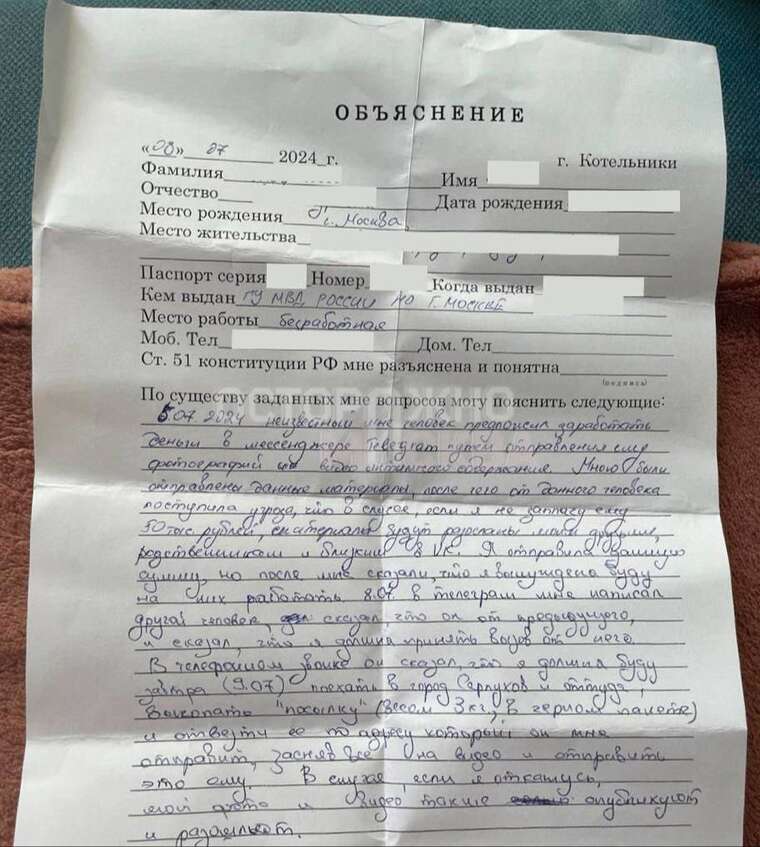 ОБЪЯСНЕНИЕ
«08» 07 2024 г. г. Котельники
Фамилия Имя
Отчество Дата рождения
Место рождения г. Москва
Место жительства
Паспорт серия Номер Когда выдан
Кем выдан ГУ МВД РОССИИ ПО Г. МОСКВЕ
Место работы безработная
Моб. Тел Дом. Тел
Ст. 51 конституции РФ мне разъяснена и понятна
(подпись)
По существу заданных мне вопросов могу пояснить следующие:
ОСТОРОЖНО
5.07.2024 неизвестный мне человек предложил заработать
деньги в мессенджере Телеграм путем отправления ему
фотографий и видео интимного содержания. Мною были
отправлены данные материалы, после чего от данного человека
поступила угроза, что в случае, если я не заплачу ему
50 тыс. рублей, материалы будут разосланы моим друзьям,
родственникам и близким в VK. Я отправила данную
сумму, но после мне сказали, что я вынуждена буду
на них работать 8.07. в телеграм мне написал
другой человек, сказал, что он от предыдущего,
и сказал, что я должна принять вызов от него.
В телефонном звонке он сказал, что я должна буду
завтра (9.07) поехать в город Серпухов и оттуда
выкопать "посылку" (весом 3 кг, в черном пакете)
и отвезти ее по адресу который он мне
отправит, засняв все на видео и отправить
это ему. В случае, если я откажусь,
мои фото и видео также опубликуют
и разошлют.